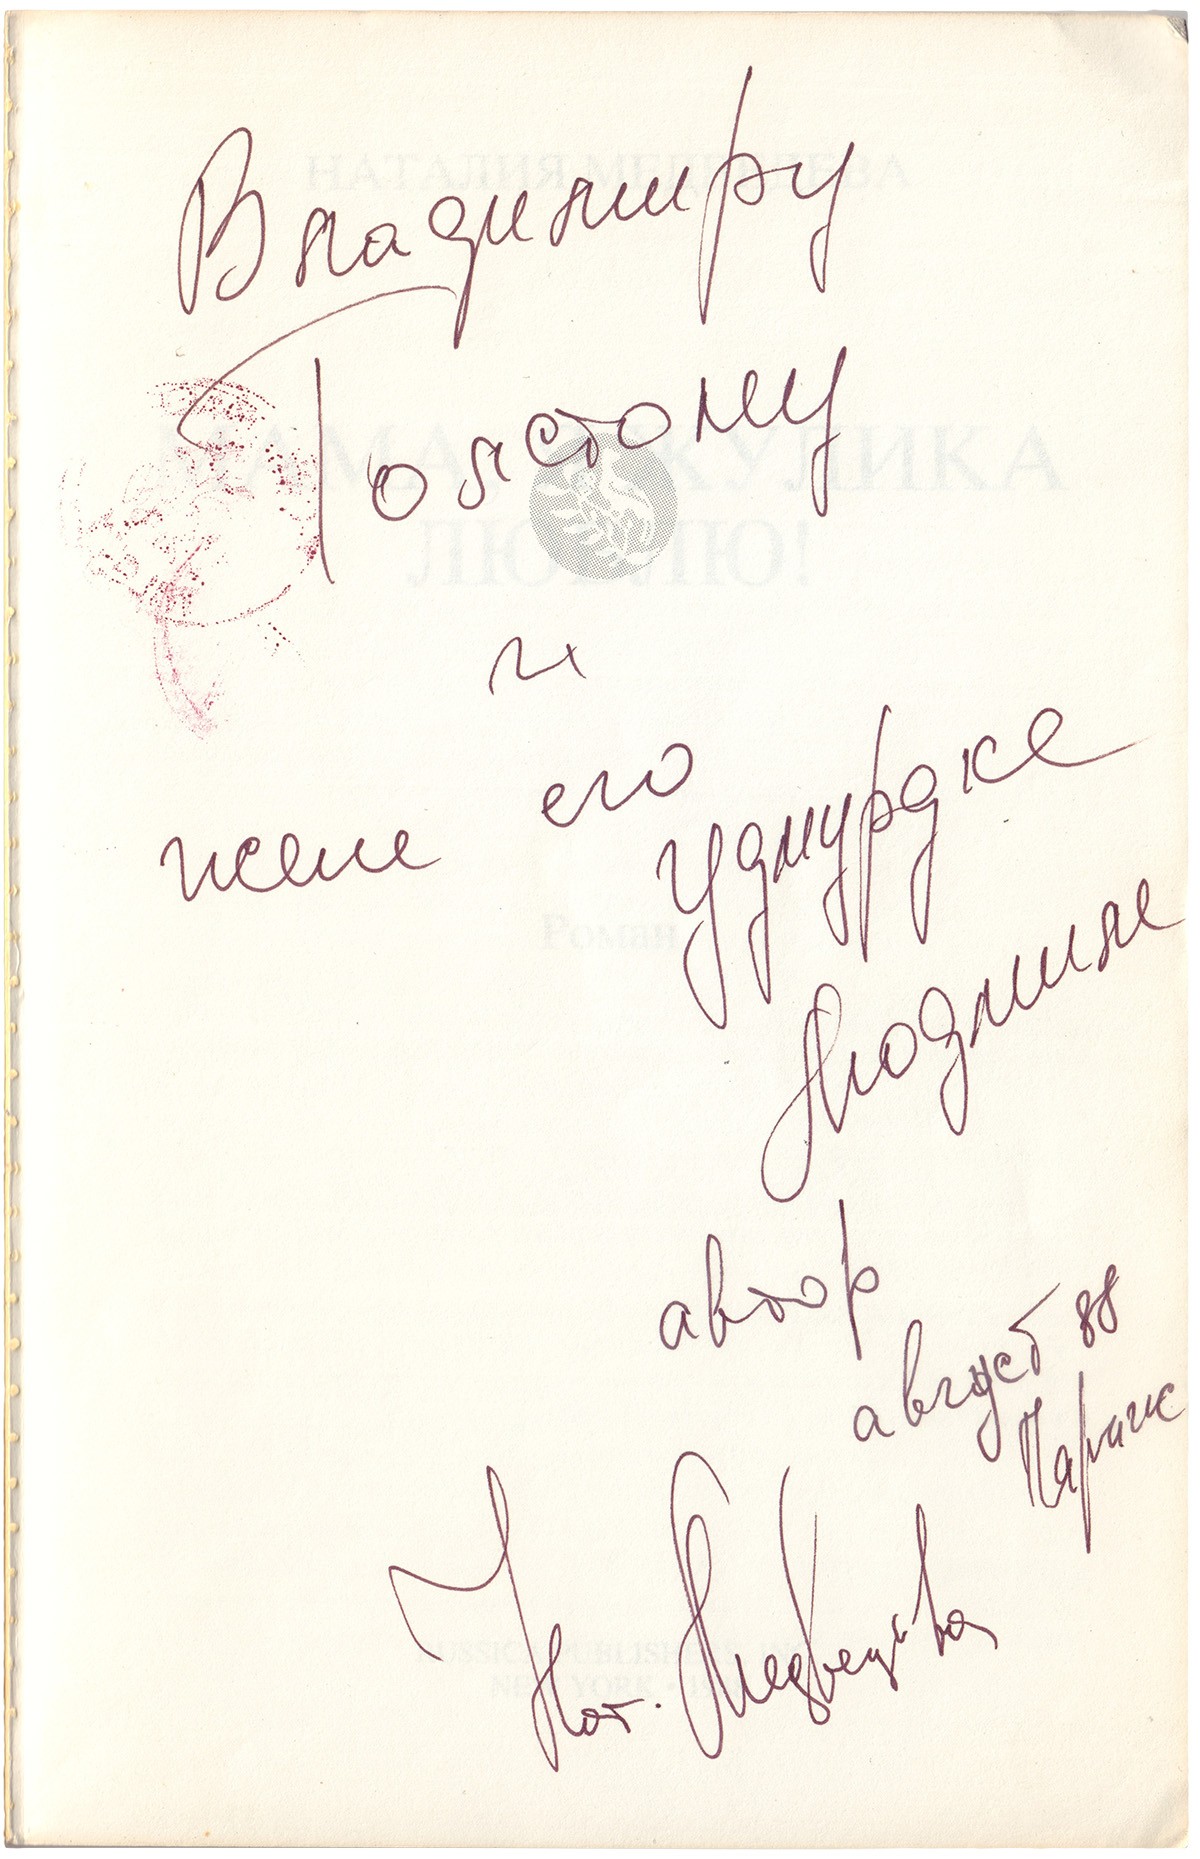 Владимиру
Толстому
и
жене его
Удмурдке
Людмиле
автор
август 88
Париж
Нат. Медведева
НАТАЛИЯ МЕДВЕДЕВА
МАМА, Я ЖУЛИКА
ЛЮБЛЮ!
Роман
RUSSICA PUBLISHERS, INC.
NEW YORK •